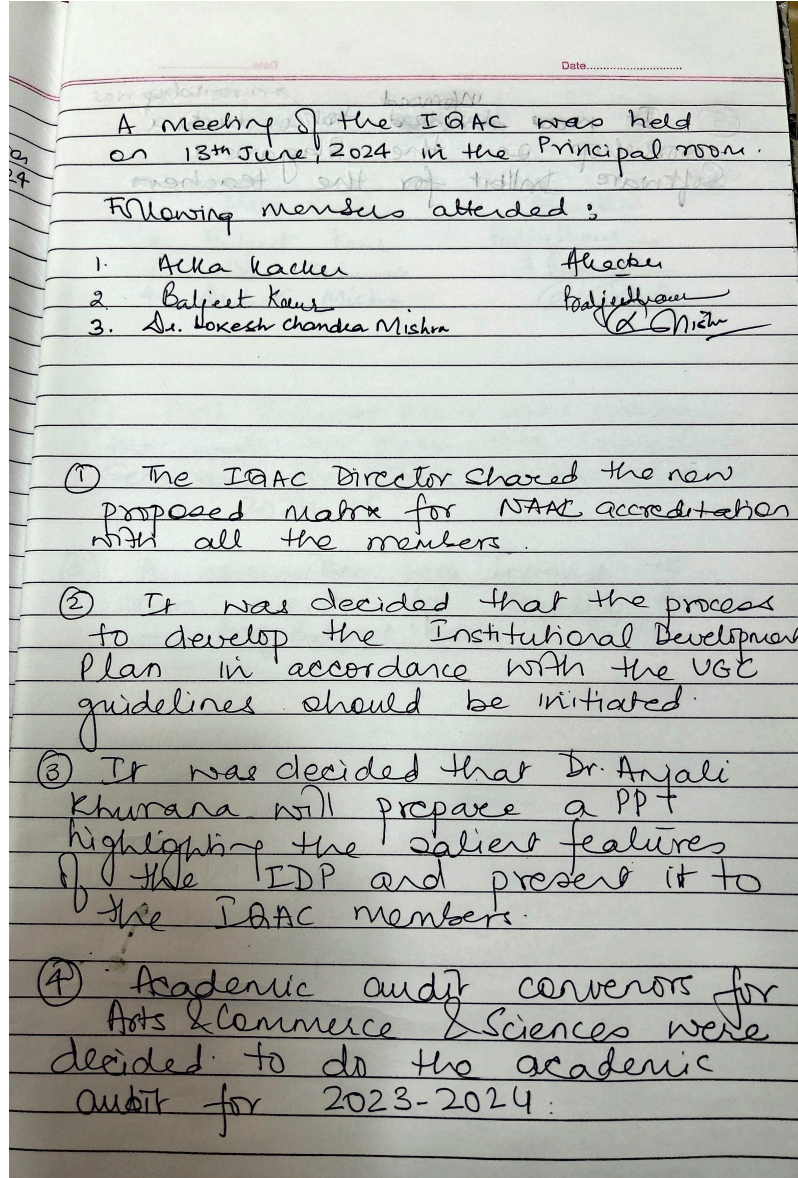 Date..............................
A meeting of the IQAC was held
on 13th June, 2024 in the Principal room.
24
Following members attended :
1. Alka Kacker Akacker
2 Baljeet Kaur Baljeetkaur
3. Dr. Lokesh Chandra Mishra
① The IQAC Director shared the new
proposed matrix for NAAC accreditation
with all the members.
② It was decided that the process
to develop the Institutional Development
Plan in accordance with the UGC
guidelines should be initiated.
③ It was decided that Dr. Anjali
Khurana will prepare a PPT
highlighting the salient features
of the IDP and present it to
the IQAC members.
④ Academic audit convenors for
Arts & Commerce & Sciences were
decided to do the academic
audit for 2023-2024.